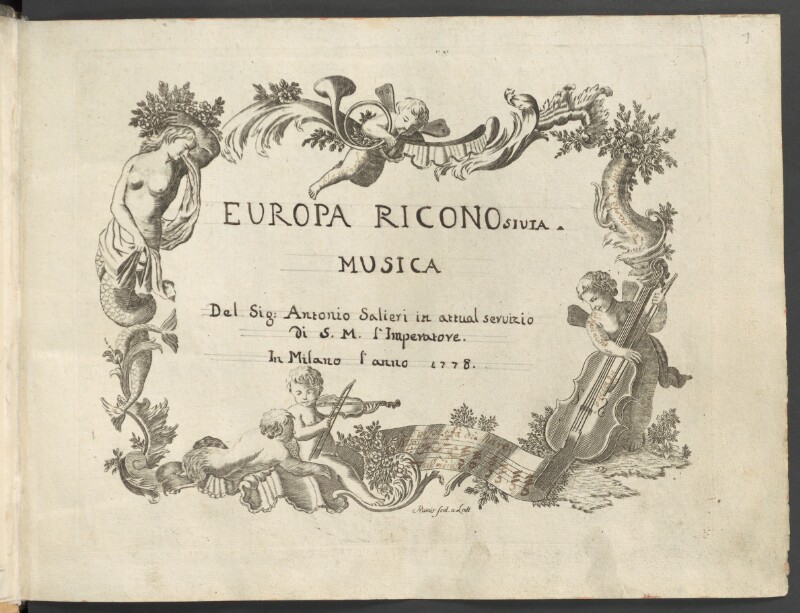 EUROPA RICONOSIUTA.
MUSICA
Del Sig: Antonio Salieri in attual servizio
Di S. M. l'Imperatore.
In Milano l'anno 1778.